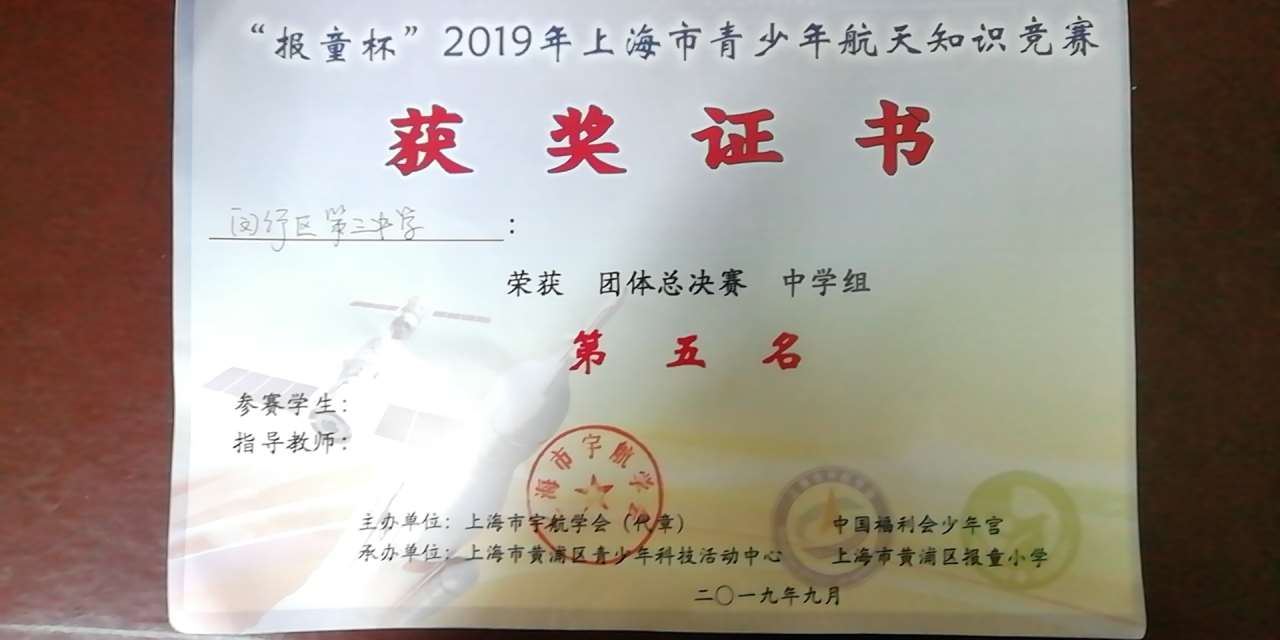 “报童杯”2019年上海市青少年航天知识竞赛
获奖证书
闵行区第三中学：
荣获 团体总决赛 中学组
第五名
参赛学生：
指导教师：
海市宇航学会
主办单位：上海市宇航学会（代章） 中国福利会少年宫
承办单位：上海市黄浦区青少年科技活动中心 上海市黄浦区报童小学
二〇一九年九月